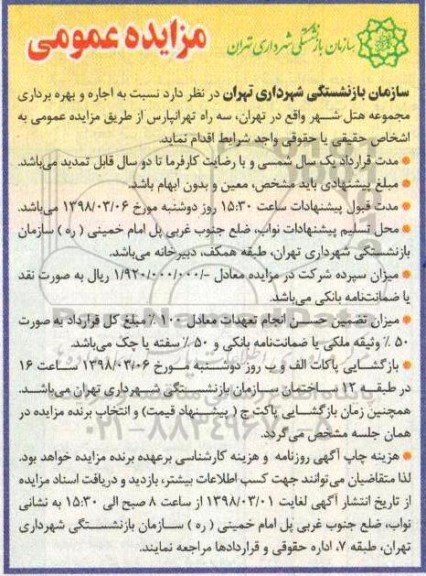 سازمان بازنشستگی شهرداری تهران
مزایده عمومی
سازمان بازنشستگی شهرداری تهران در نظر دارد نسبت به اجاره و بهره برداری
مجموعه هتل شهر واقع در تهران، سه راه تهرانپارس از طریق مزایده عمومی به
اشخاص حقیقی یا حقوقی واجد شرایط اقدام نماید.
● مدت قرارداد یک سال شمسی و با رضایت کارفرما تا دو سال قابل تمدید می‌باشد.
● مبلغ پیشنهادی باید مشخص، معین و بدون ابهام باشد.
● مدت قبول پیشنهادات ساعت ۱۵:۳۰ روز دوشنبه مورخ ۱۳۹۸/۰۳/۰۶ می‌باشد.
● محل تسلیم پیشنهادات نواب، ضلع جنوب غربی پل امام خمینی ( ره ) سازمان
بازنشستگی شهرداری تهران، طبقه همکف، دبیرخانه می‌باشد.
● میزان سپرده شرکت در مزایده معادل -/۱/۹۲۰/۰۰۰/۰۰۰ ریال به صورت نقد
یا ضمانت‌نامه بانکی می‌باشد.
● میزان تضمین حسن انجام تعهدات معادل ۱۰۰٪ مبلغ کل قرارداد به صورت
۵۰ ٪ وثیقه ملکی یا ضمانت‌نامه بانکی و ۵۰ ٪ سفته یا چک می‌باشد.
● بازگشایی پاکات الف و ب روز دوشنبه مورخ ۱۳۹۸/۰۳/۰۶ ساعت ۱۶
در طبقه ۱۲ ساختمان سازمان بازنشستگی شهرداری تهران می‌باشد.
همچنین زمان بازگشایی پاکت ج ( پیشنهاد قیمت) و انتخاب برنده مزایده در
همان جلسه مشخص می‌گردد.
● هزینه چاپ آگهی روزنامه و هزینه کارشناسی برعهده برنده مزایده خواهد بود.
لذا متقاضیان می‌توانند جهت کسب اطلاعات بیشتر، بازدید و دریافت اسناد مزایده
از تاریخ انتشار آگهی لغایت ۱۳۹۸/۰۳/۰۱ از ساعت ۸ صبح الی ۱۵:۳۰ به نشانی
نواب، ضلع جنوب غربی پل امام خمینی ( ره ) سازمان بازنشستگی شهرداری
تهران، طبقه ۷، اداره حقوقی و قراردادها مراجعه نمایند.